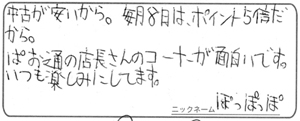 中古が安いから。毎月8日は、ポイント5倍だ
から。
ぱお通の店長さんのコーナーが面白いです。
いつも楽しみにしてます。
ニックネーム ぽっぽっぽ